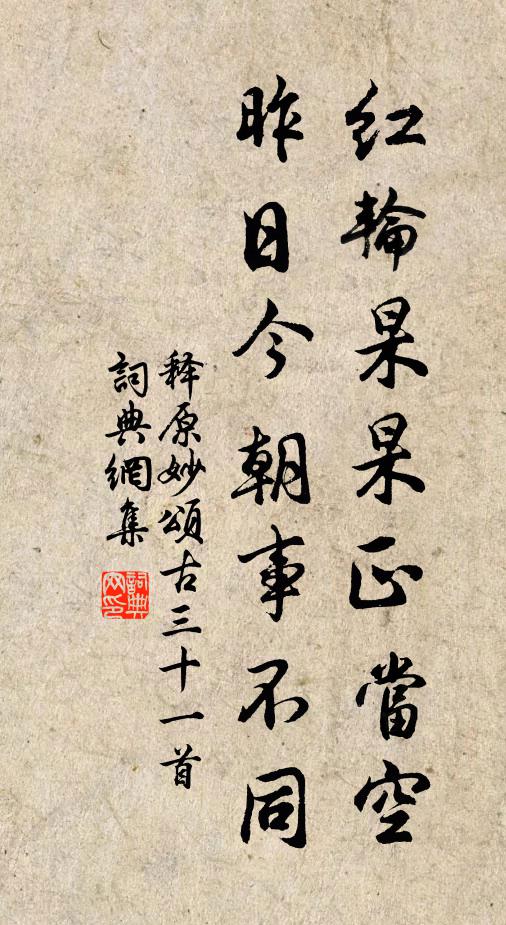 紅輪杲杲正當空
昨日今朝事不同
释原妙頌古三十一首
詞典網集
詞典网印